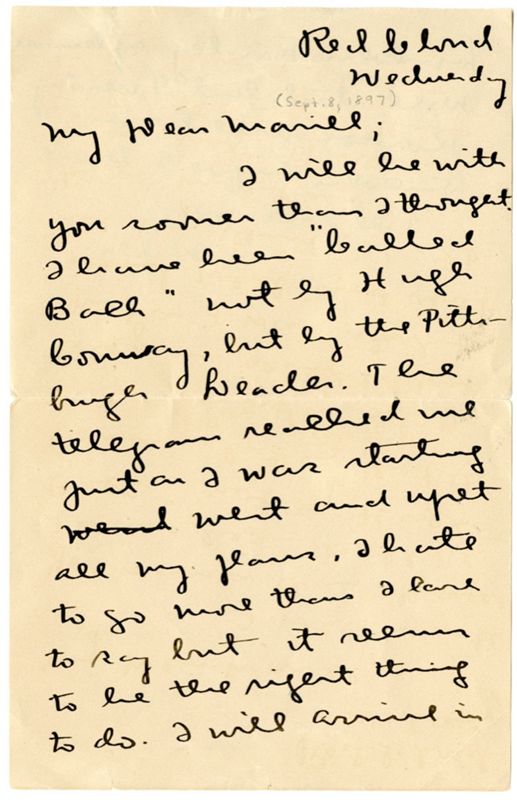 Red Cloud
Wednesday
(Sept. 8, 1897)
My Dear Mariel;
I will be with
you sooner than I thought.
I have been "called
Back" not by Hugh
Conway, but by the Pitts-
burgh Leader. The
telegram reached me
just as I was starting
west and upset
all my plans, I hate
to go more than I care
to say but it seems
to be the right thing
to do. I will arrive in